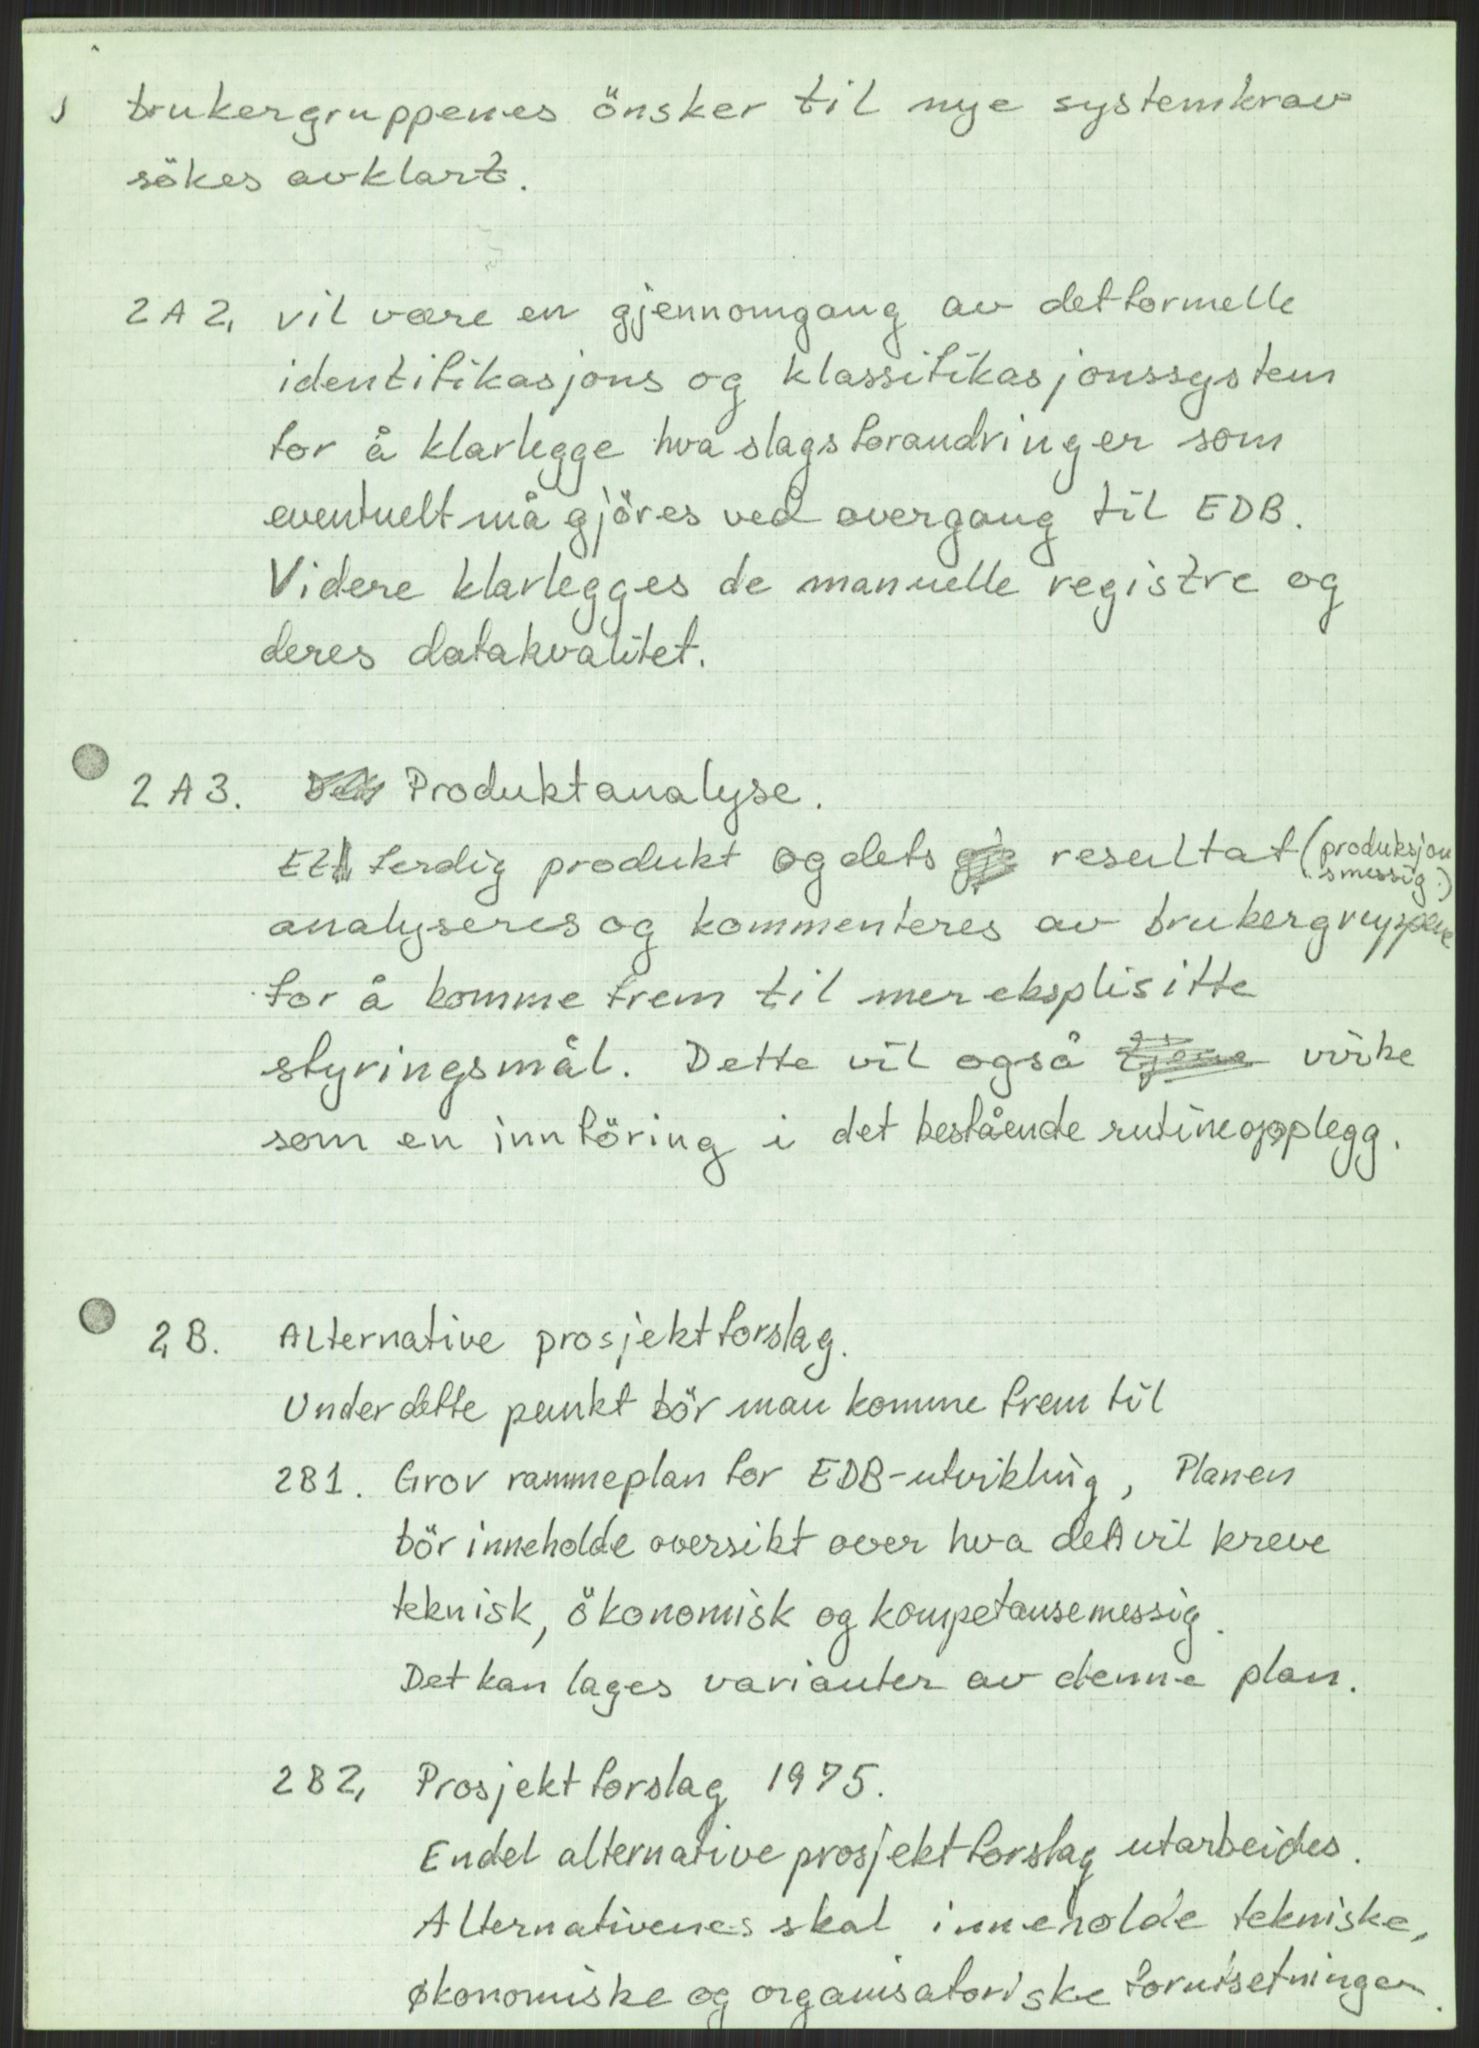 brukergruppenes önsker til nye systemkrav
sökes avklart.
2A2. vil være en gjennomgang av det formelle
identifikasjons og klassifikasjonssystem
for å klarlegge hva slags forandringer som
eventuelt må gjöres ved overgang til EDB.
Videre klarlegges de manuelle registre og
deres datakvalitet.
2A3. Produktanalyse.
Et ferdig produkt og dets resultat (produksjon
smessig.)
analyseres og kommenteres av brukergruppene
for å komme frem til mer eksplisitte
styringsmål. Dette vil også virke
som en innföring i det bestående rutineopplegg.
2B. Alternative prosjektforslag.
Under dette punkt bör man komme frem til
2B1. Grov rammeplan for EDB-utvikling, Planen
bör inneholde oversikt over hva det vil kreve
teknisk, ökonomisk og kompetansemessig.
Det kan lages varianter av denne plan.
2B2. Prosjektforslag 1975.
Endel alternative prosjektforslag utarbeides.
Alternativenes skal inneholde tekniske,
økonomiske og organisatoriske forutsetninger.